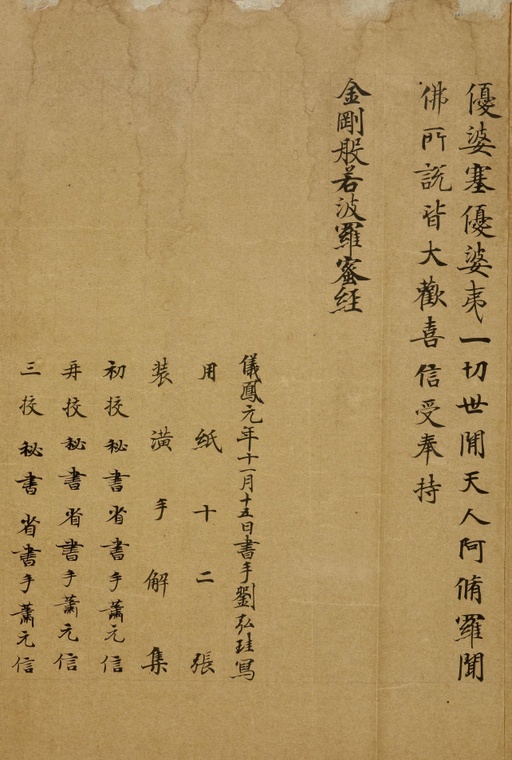 優婆塞優婆夷一切世間天人阿脩羅聞
佛所說皆大歡喜信受奉持
金剛般若波羅蜜經
儀鳳元年十一月十五日書手劉弘珪寫
用紙十二張
裝潢手解集
初挍秘書省書手蕭元信
再挍秘書省書手蕭元信
三挍秘書省書手蕭元信